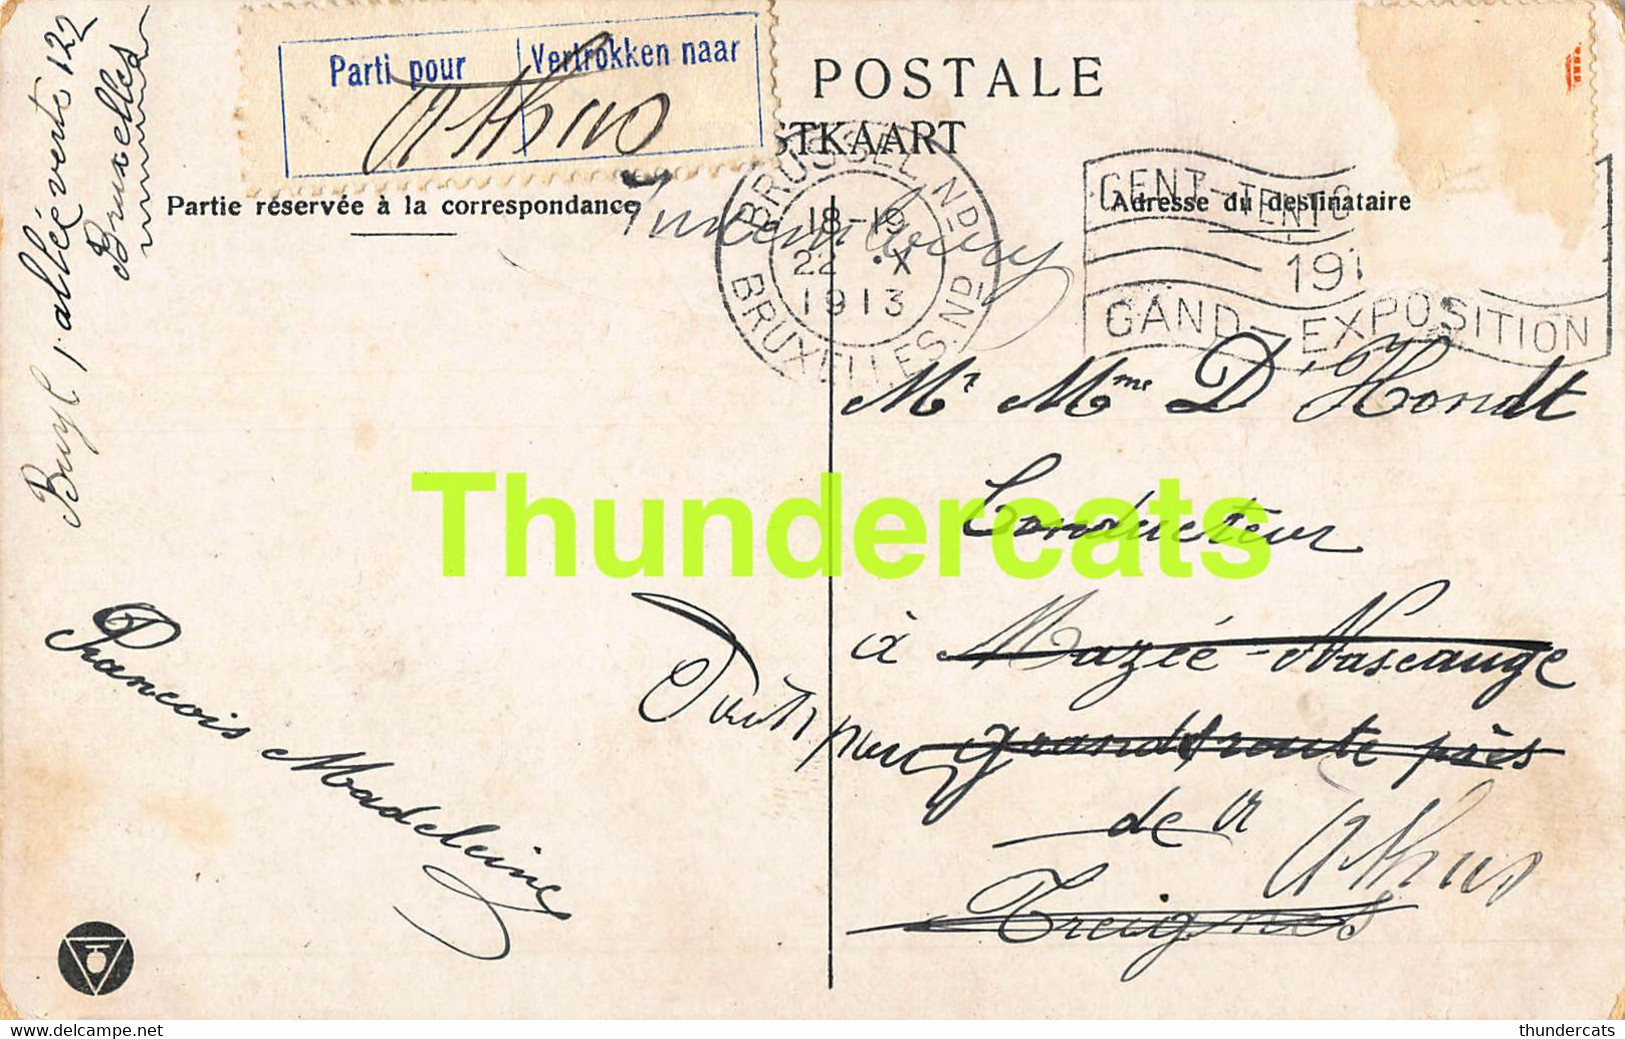 Buyl, allée verte 122
Bruxelles
Parti pour | Vertrokken naar
Athus
POSTALE
STKAART
Partie réservée à la correspondance
Adresse du destinataire
BRUSSEL Nd
18-19
22 X
1913
BRUXELLES. Nd
GENT-TENTO
191
GAND-EXPOSITION
Mr Mme D'Hondt
Thundercats
Conducteur
à Mazée-Nascauge
Parti pour grand'route près
de a Athus
Treignes
Francois Madeleine
thundercats